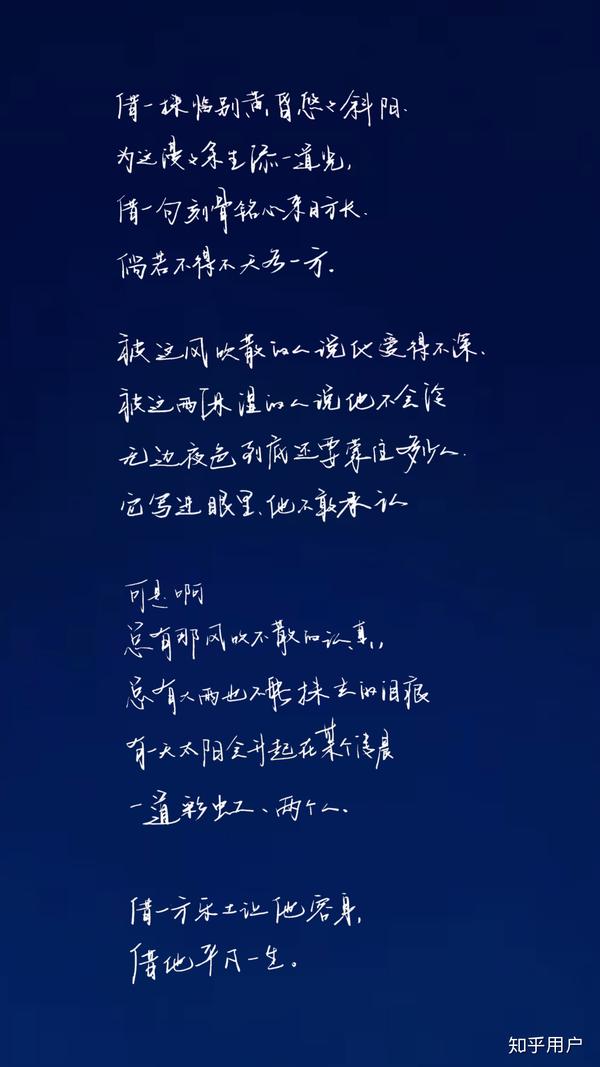 借一抹临别黄昏悠々斜阳.
为这漫々余生添一道光,
借一句刻骨铭心来日方长.
倘若不得不天各一方.
被这风吹散的人说他爱得不深.
被这雨淋湿的人说他不会冷
无边夜色到底还要蒙住多少人.
它写进眼里、他不敢承认
可是啊
总有那风吹不散的认真,
总有大雨也不能抹去的泪痕
有一天太阳会升起在某个清晨
一道彩虹、两个人.
借一方乐土让他容身,
借他平凡一生。
知乎用户